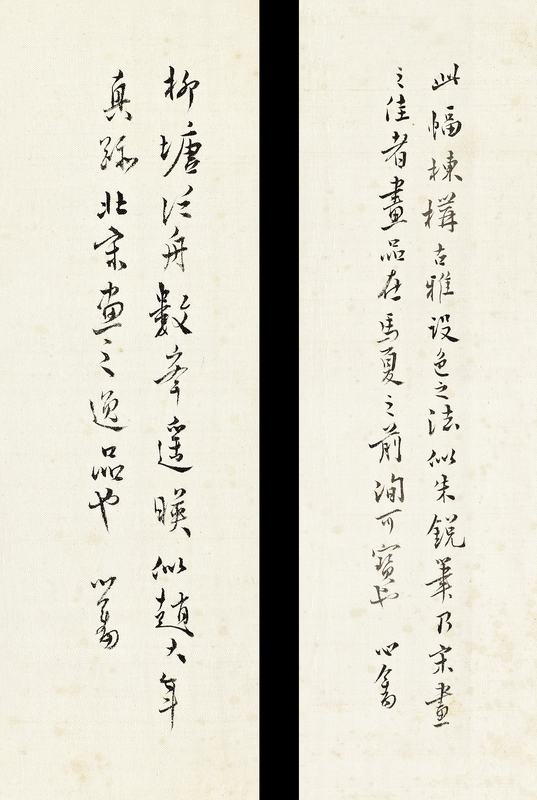 此幅棟構古雅設色之法似朱銳筆乃宋畫
之佳者畫品在馬夏之前洵可寶也 心畬
柳塘泛舟數峯遥暎似趙大年
真跡北宋畫之逸品也 心畬